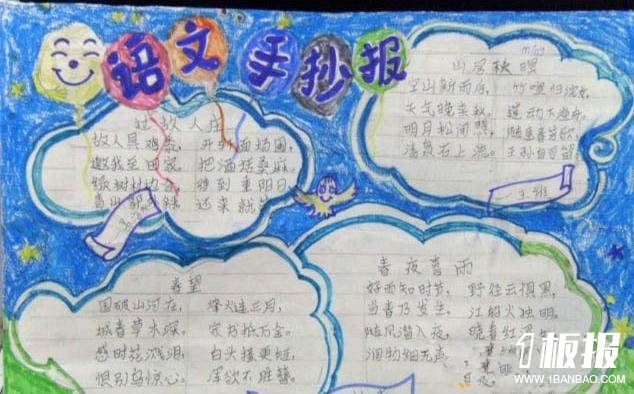 语文手抄报
过故人庄
故人具鸡黍, 开轩面场圃,
邀我至田家, 把酒话桑麻。
绿树村边 待到重阳日,
还来就
míng
山居秋暝
空山新雨后, 竹喧归浣女,
天气晚来秋。 莲动下渔舟。
明月松间照, 随意春芳歇,
清泉石上流。 王孙自可留。
—王维
春望
国破山河在, 烽火连三月,
城春草木深。 家书抵万金。
感时花溅泪, 白头搔更短,
恨别鸟惊心。 浑欲不胜簪。
春夜喜雨
好雨知时节, 野径云俱黑,
当春乃发生。 江船火独明。
随风潜入夜, 晓看红
润物细无声。
1板报
WWW.1BANBAO.COM